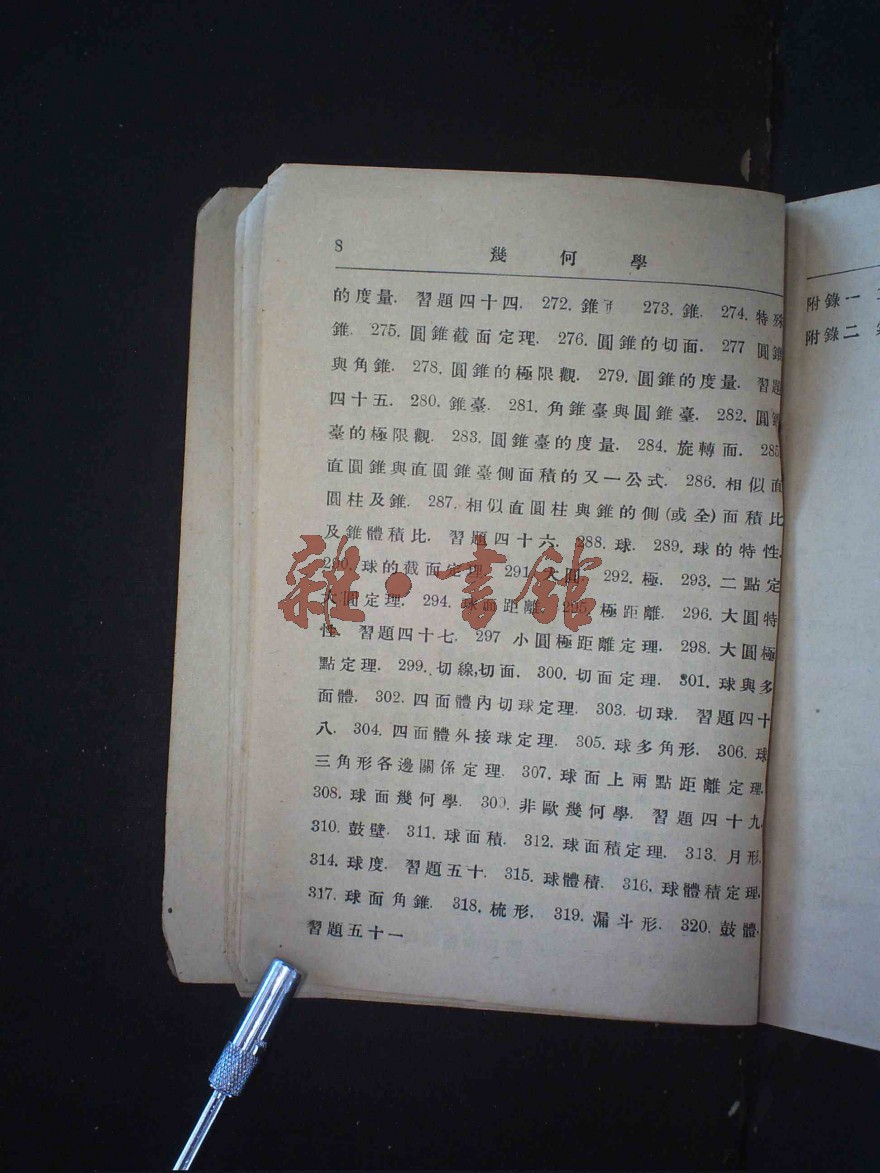 8
幾何學
的度量. 習題四十四. 272. 錐 273. 錐. 274. 特殊
錐. 275. 圓錐截面定理. 276. 圓錐的切面. 277 圓錐
與角錐. 278. 圓錐的極限觀. 279. 圓錐的度量. 習題
四十五. 280. 錐臺. 281. 角錐臺與圓錐臺. 282. 圓錐
臺的極限觀. 283. 圓錐臺的度量. 284. 旋轉面. 285.
直圓錐與直圓錐臺側面積的又一公式. 286. 相似直
圓柱及錐. 287. 相似直圓柱與錐的側(或全)面積比
及錐體積比. 習題四十六. 288. 球. 289. 球的特性.
290. 球的截面定理. 291. 大圓. 292. 極. 293. 二點定
大圓定理. 294. 球面距離. 295. 極距離. 296. 大圓特
性 習題四十七. 297 小圓極距離定理. 298. 大圓極
點定理. 299. 切線,切面. 300. 切面定理. 301. 球與多
面體. 302. 四面體內切球定理. 303. 切球. 習題四十
八. 304. 四面體外接球定理. 305. 球多角形. 306. 球
三角形各邊關係定理. 307. 球面上兩點距離定理.
308. 球面幾何學. 309. 非歐幾何學. 習題四十九.
310. 鼓壁. 311. 球面積. 312. 球面積定理. 313. 月形.
314. 球度. 習題五十. 315. 球體積. 316. 球體積定理.
317. 球面角錐. 318. 梳形. 319. 漏斗形. 320. 鼓體.
習題五十一
附錄一
附錄二
雜·書館